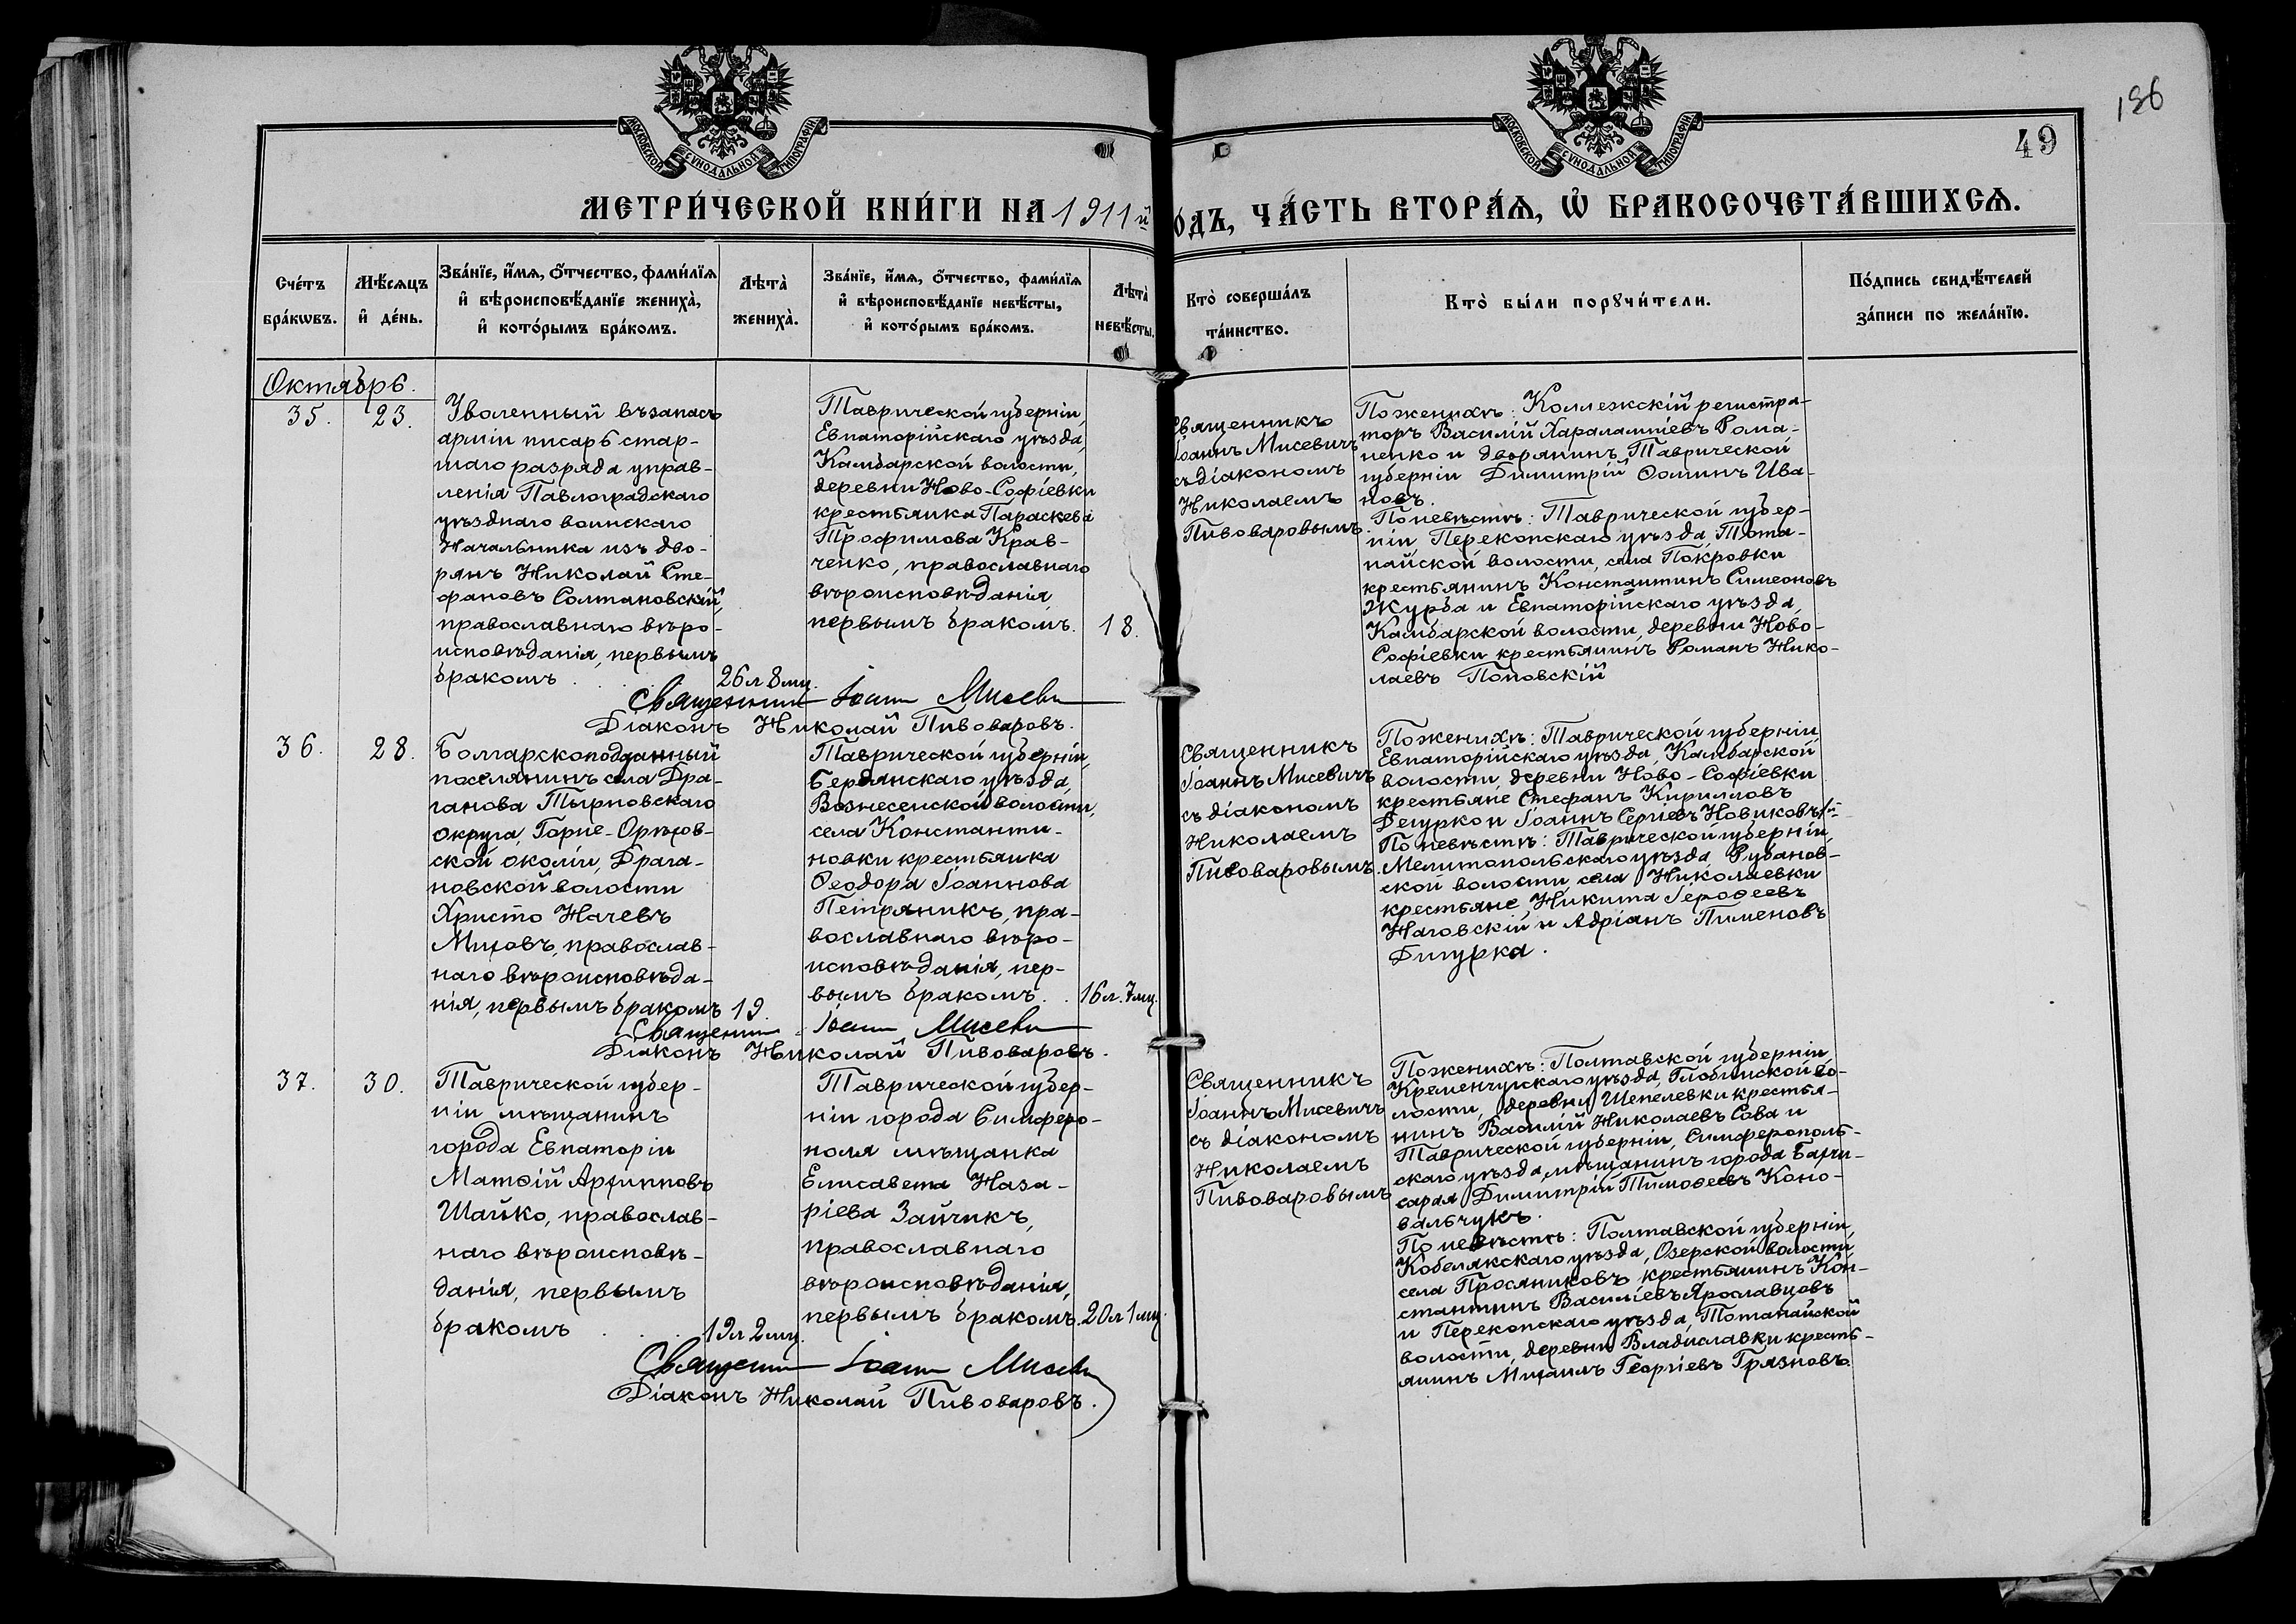 186
49
МОСКОВСКОЙ СѴНОДАЛЬНОЙ ТИПОГРАФІИ
МОСКОВСКОЙ СѴНОДАЛЬНОЙ ТИПОГРАФІИ
МЕТРИ́ЧЕСКОЙ КНИ́ГИ НА 1911й
ОДЪ, ЧА́СТЬ ВТОРА́Ѧ, Ѡ҆ БРАКОСОЧЕТА́ВШИХСѦ.
Сче́тъ
бра́кѡвъ.
Мѣ́сѧцъ
и҆ де́нь.
Зва́нїе, и҆́мѧ, ѻ҆́тчество, фами́лїѧ
и҆ вѣроисповѣ́данїе жениха̀,
и҆ кото́рымъ бра́комъ.
Лѣта̀
жениха̀.
Зва́нїе, и҆́мѧ, ѻ҆́тчество, фами́лїѧ
и҆ вѣроисповѣ́данїе невѣ́сты,
и҆ кото́рымъ бра́комъ.
Лѣта̀
невѣ́сты.
Кто̀ соверша́лъ
та́инство.
Кто̀ бы́ли порꙋчи́тели.
По́дпись свидѣ́телей
за́писи по жела́нїю.
Октябрь.
35.
23.
Уволенный въ запасъ
арміи писарь стар-
шаго разряда управ-
ленія Павлоградскаго
уѣзднаго воинскаго
Начальника изъ дво-
рянъ Николай Сте-
фановъ Солтановскій,
православнаго вѣро-
исповѣданія, первымъ
бракомъ . . .
26 л 8 мц.
Таврической губерніи,
Евпаторійскаго уѣзда,
Камбарской волости,
деревни Ново-Софіевки
крестьянка Параскева
Трофимова Крав-
ченко, православнаго
вѣроисповѣданія,
первымъ бракомъ.
18.
Священникъ
Іоаннъ Мисевичъ
съ діакономъ
Николаемъ
Пивоваровымъ.
По женихѣ: Коллежскій регистра-
торъ Василій Харалампіевъ Рома-
ненко и дворянинъ Таврической
губерніи Димитрій Ѳоминъ Ива-
новъ.
По невѣстѣ: Таврической губер-
ніи, Перекопскаго уѣзда, Тота-
найской волости, села Покровки
крестьянинъ Константинъ Симеоновъ
Журба и Евпаторійскаго уѣзда,
Камбарской волости, деревни Ново-
Софіевки крестьянинъ Романъ Нико-
лаевъ Поповскій
Священник Іоанн Мисевич
Діаконъ Николай Пивоваровъ.
36.
28.
Болгарскоподданный
поселянинъ села Дра-
ганова Тырновскаго
округа, Горне-Орѣхов-
ской околіи, Драга-
новской волости
Христо Начевъ
Мицовъ, православ-
наго вѣроисповѣда-
нія, первымъ бракомъ
19.
Таврической губерніи,
Бердянскаго уѣзда,
Вознесенской волости,
села Константи-
новки крестьянка
Ѳеодора Іоаннова
Петряникъ, пра-
вославнаго вѣро-
исповѣданія, пер-
вымъ бракомъ. .
16 л. 7 мц.
Священникъ
Іоаннъ Мисевичъ
съ діакономъ
Николаемъ
Пивоваровымъ.
По женихѣ: Таврической губерніи,
Евпаторійскаго уѣзда, Камбарской
волости, деревни Ново-Софіевки
крестьяне Стефанъ Кирилловъ
Дегурко и Іоаннъ Сергіевъ Новиковъ
По невѣстѣ: Таврической губерніи,
Мелитопольскаго уѣзда, Рубанов-
ской волости, села Николаевки
крестьяне Никита Іероѳеевъ
Наговскій и Адріанъ Пименовъ
Дигурка.
Священник Іоанн Мисевич
Діаконъ Николай Пивоваровъ.
37.
30.
Таврической губер-
ніи мѣщанинъ
города Евпаторіи
Матѳій Архипповъ
Шайко, православ-
наго вѣроисповѣ-
данія, первымъ
бракомъ . . .
19 л 2 мц.
Таврической губер-
ніи города Симферо-
поля мѣщанка
Елисавета Наза-
ріева Зайчикъ,
православнаго
вѣроисповѣданія,
первымъ бракомъ.
20 л 1 мц.
Священникъ
Іоаннъ Мисевичъ
съ діакономъ
Николаемъ
Пивоваровымъ
По женихѣ: Полтавской губерніи,
Кременчугскаго уѣзда, Глобинской во-
лости, деревни Шепелевки крестья-
нинъ Василій Николаевъ Сова и
Таврической губерніи, Симферополь-
скаго уѣзда, мѣщанинъ города Бахчи-
сарая Димитрій Тимоѳеевъ Коно-
вальчукъ.
По невѣстѣ: Полтавской губерніи,
Кобелякскаго уѣзда, Озерской волости,
села Просяниковъ крестьянинъ Кон-
стантинъ Василіевъ Ярославцовъ
и Перекопскаго уѣзда, Тотанайской
волости, деревни Владиславки кресть-
янинъ Михаилъ Георгіевъ Грязновъ.
Священник Іоанн Мисевич
Діаконъ Николай Пивоваровъ.